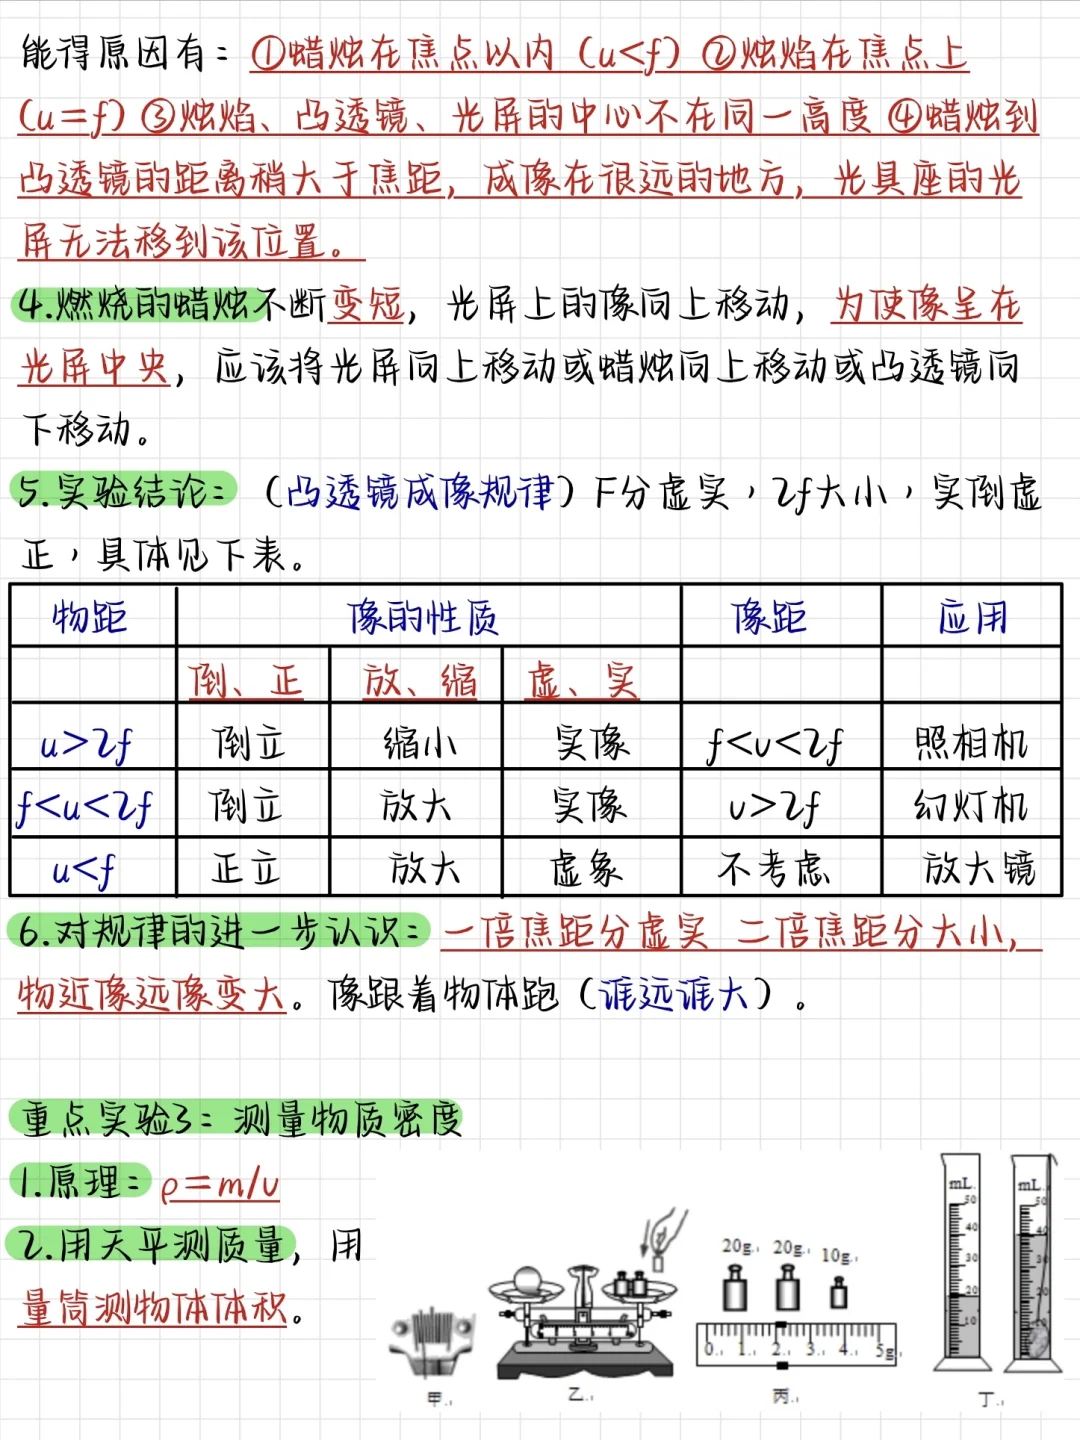 能得原因有：①蜡烛在焦点以内（u<f）②烛焰在焦点上
（u=f）③烛焰、凸透镜、光屏的中心不在同一高度④蜡烛到
凸透镜的距离稍大于焦距，成像在很远的地方，光具座的光
屏无法移到该位置。
4.燃烧的蜡烛不断变短，光屏上的像向上移动，为使像呈在
光屏中央，应该将光屏向上移动或蜡烛向上移动或凸透镜向
下移动。
5.实验结论：（凸透镜成像规律）F分虚实，2f大小，实倒虚
正，具体见下表。
物距 像的性质 像距 应用
倒、正 放、缩 虚、实
u>2f 倒立 缩小 实像 f<v<2f 照相机
f<u<2f 倒立 放大 实像 v>2f 幻灯机
u<f 正立 放大 虚象 不考虑 放大镜
6.对规律的进一步认识：一倍焦距分虚实 二倍焦距分大小，
物近像远像变大。像跟着物体跑（谁远谁大）。
重点实验3：测量物质密度
1.原理：ρ=m/v
2.用天平测质量，用
量筒测物体体积。
20g 20g 10g
0 1 2 3 4 5g
mL 50 40 30 20 10
mL 50 40 30 20 10
甲 乙 丙 丁